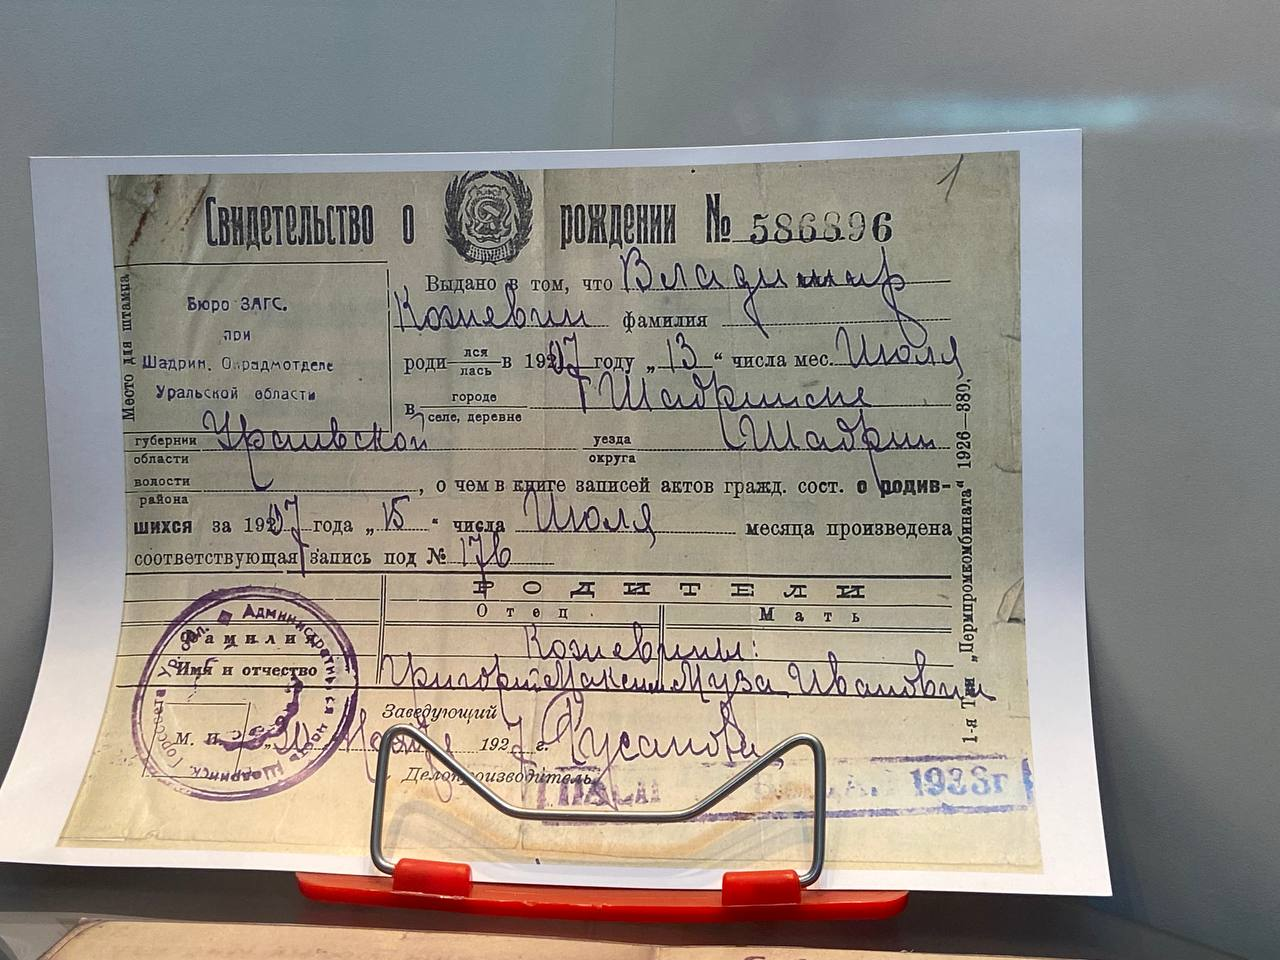 1
Свидетельство о рождении № 586896
РСФСР
Место для штампа
Бюро ЗАГС.
при
Шадрин. Окрадмотделе
Уральской области
Выдано в том, что Владимир
Кожевин фамилия
родился/лась в 1927 году „13“ числа мес. Июля
в городе г Шадринске
селе, деревне
губернии Уральской уезда Шадрин
области округа
волости
района
, о чем в книге записей актов гражд. сост. о родив-
шихся за 1927 года „15“ числа Июля месяца произведена
соответствующая запись под № 176
РОДИТЕЛИ
Отец. Мать
Фамилия Кожевины:
Имя и отчество Григорий Максим Муза Ивановна
Заведующий
М. П. 1927 г. Русанова
Делопроизводитель
Административная часть Шадринск. Горсовета Ур. обл.
1938г
1-я Тип „Пермпромкомбината“ 1926—880.